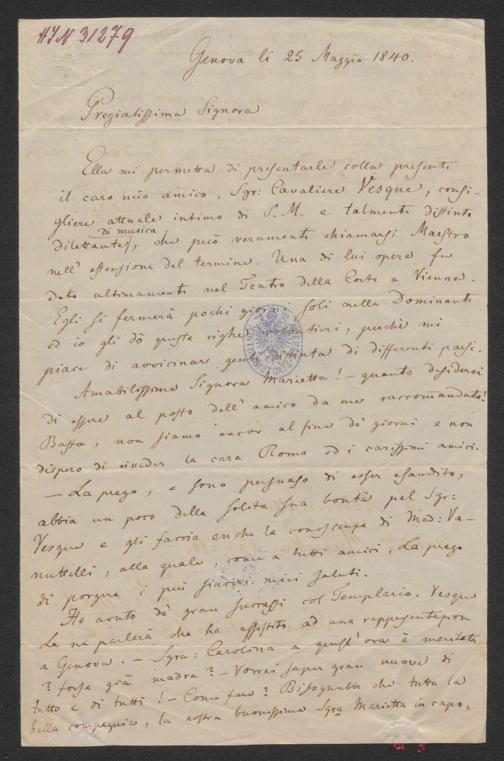 HIN 31279
Genova li 25 Maggio 1840.
Pregiatissima Signora
Ella mi permetta di presentarle colla presente
il caro mio amico, Sgr: Cavaliere Vesque, consi-
gliere attuale intimo di S. M. e talmente distinto
di musica
dilettante, che può veramente chiamarsi Maestro
nell' estensione del termine. Una di lui opera fu
data ultimamente nel Teatro della Corte a Vienna.
Egli si fermerà pochi giorni soli nella Dominante
ed io gli dò queste righe volontieri, perchè mi
piace di avvicinar gente distinta di differenti paesi.
Amabilissima Signora Marietta! – quanto desiderei
di essere al posto dell' amico da me raccomandato!
Basta, non siamo ancor al fine de' giorni e non
dispero di riveder la cara Roma ed i carissimi amici.
– La prego, e sono persuaso di esser esaudito,
abbia un poco della solita sua bontà pel Sgr:
Vesque e gli faccia anche la conoscenza di Mad: Va-
nuttelli, alla quale, come a tutti amici, La prego
di porgere i più sinceri miei saluti.
Ho avuto de' gran successi col Templario. Vesque
Le ne parlerà che ha assistito ad una rappresentazion
a Genova. – Sgra: Carolina a quest' ora è maritata
? forse già madre? – Vorrei saper gran nuove di
tutto e di tutti! – Come fare? Bisognerebbe che tutta la
bella compagnia, la nostra buonissima Sgra Marietta in capo,